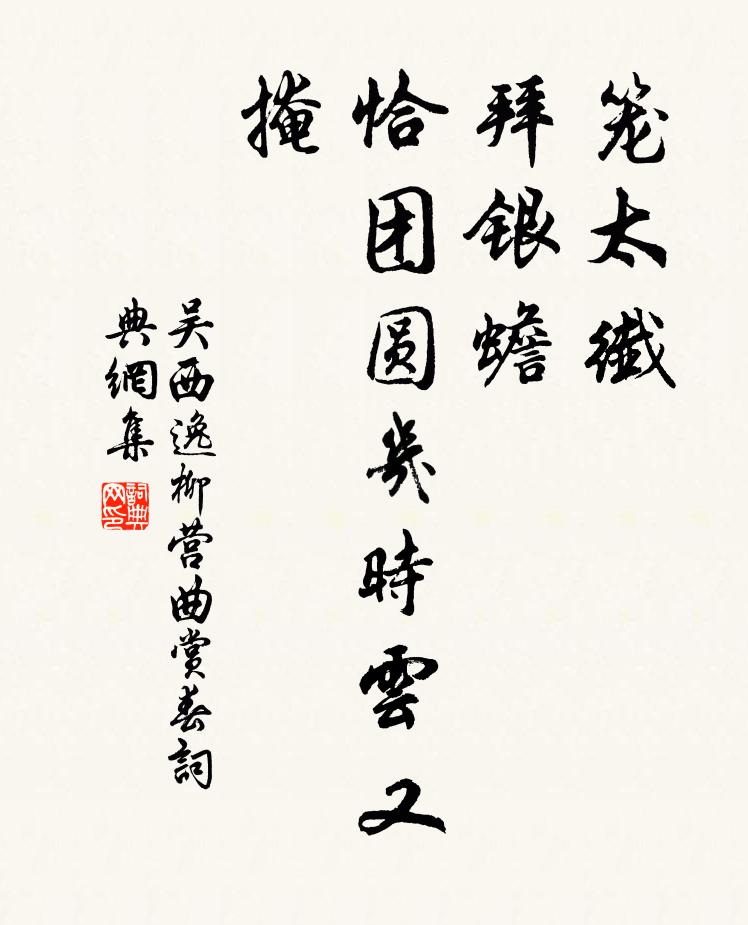 笼太纖
拜銀蟾
恰团圆幾時雲又
掩
吴西逸柳营曲赏春詞
典網集
詞典
网印